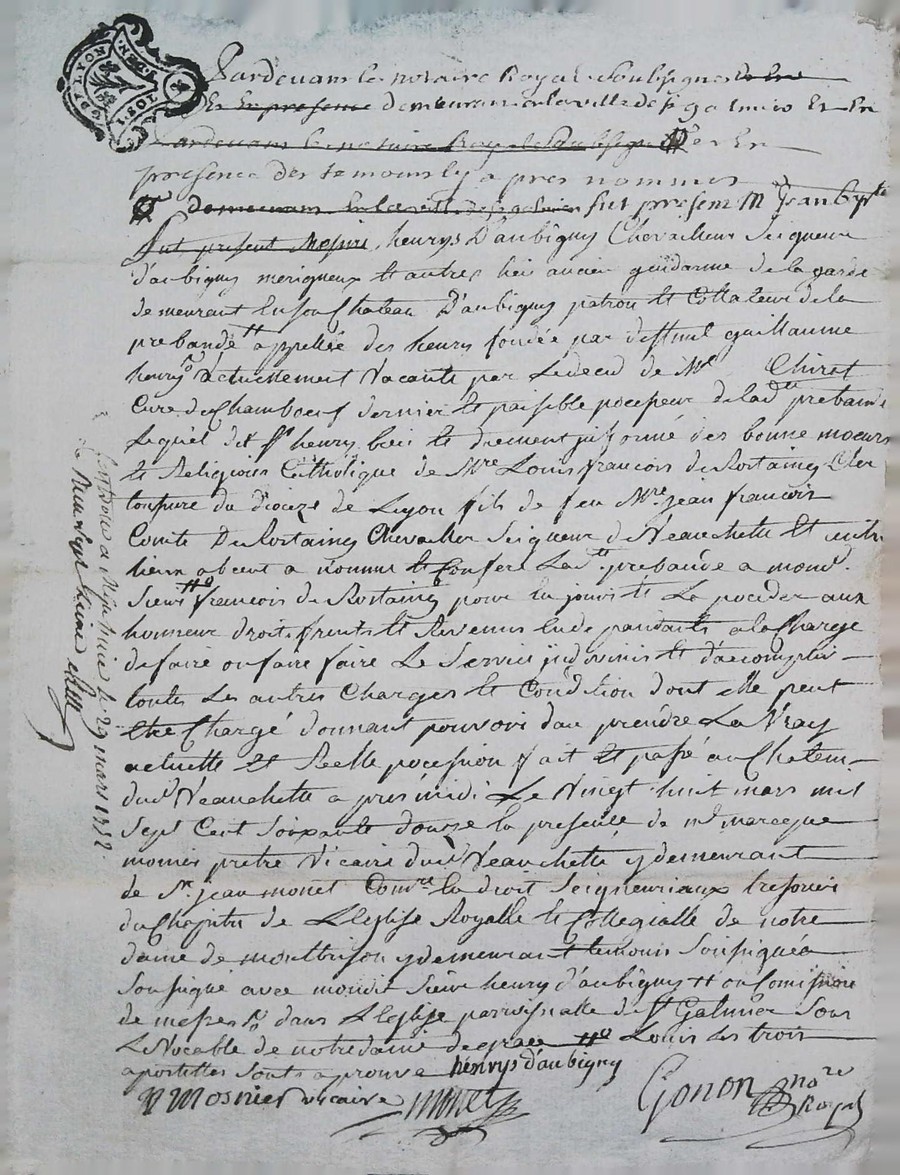 GDE LYON
Pardevant le notaire Royal soubsignes
Et En presence demeurant en la ville de st galmier Et En
Pardevant le notaire Royal soubsigné et En
presence des temoins cy apres nommes
demeurant en la ville de st galmier fut present M Jean Bpte
Fut present Messire henrys D'aubigny Chevallier Seigneur
d'aubigny merigneux et autres lieu ancien guidarme de la garde
demeurant En son Chateau D'aubigny patron et Collateur de la
prebande tt appellée des henrys fondée par deffunt guillaume
henrys actuellement Vacante par Le deced de Mre Chirat
Curé de Chambœuf dernier et paisible pocesseur de lad te prebande
Lequel dit Sr henry bien et duement informé des bonne mœurs
et Religion Catholique de Mre Louis francois de Rostaing Cler
tonsuré du dioceze de Lyon fils de feu Mre jean francois
Comte De Rostaing Chevalier Seigneur de Veauchette et autre
lieux absent a nommé et Conferé Lad te prebande a mond.
Sieur tto francois de Rostaing pour En jouir et La poceder aux
honneur droits fruits et Revenus En dependants a la Charge
de faire ou faire faire Le Service divin et d'acomplir
toutes Les autres Charges et Condition dont elle peut
Etre Chargé donnant pouvoir d'en prendre La Vray
actuelle et Reelle pocession fait et passé au Chateau
dud Veauchette apres midi Le Vingt huit mars mil
Sept Cent Soixante douze En presence de mre
monier pretre Vicaire dud Veauchette y demeurant
de Sr. jean monet Comre En droit Seigneuriaux tresorier
du Chapitre de L'Eglise Royalle et Collegialle de notre
dame de montbrison y demeurant temoins Soussignés
Soussigné avec mondit Sieur henry d'aubigny tt ou Comission
de messes dans L'Eglise parroissialle de St Galmier Sous
Le Vocable de notre dame de grace tto Louis Les trois
apostilles Sont aprouvé henrys d'aubigny
Mosnier vicaire monet Gonon nore Royal
Controlé a le 29 mars 1772.